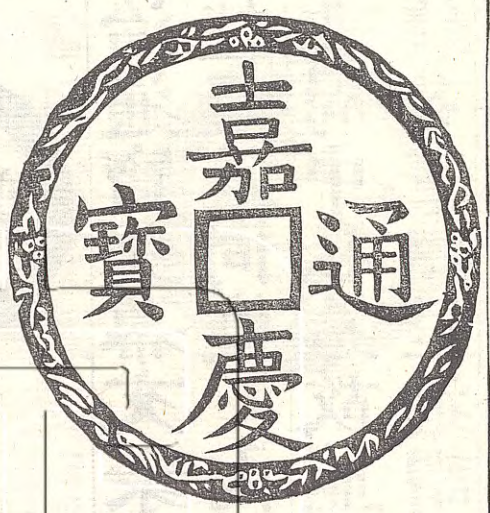 嘉慶通寶